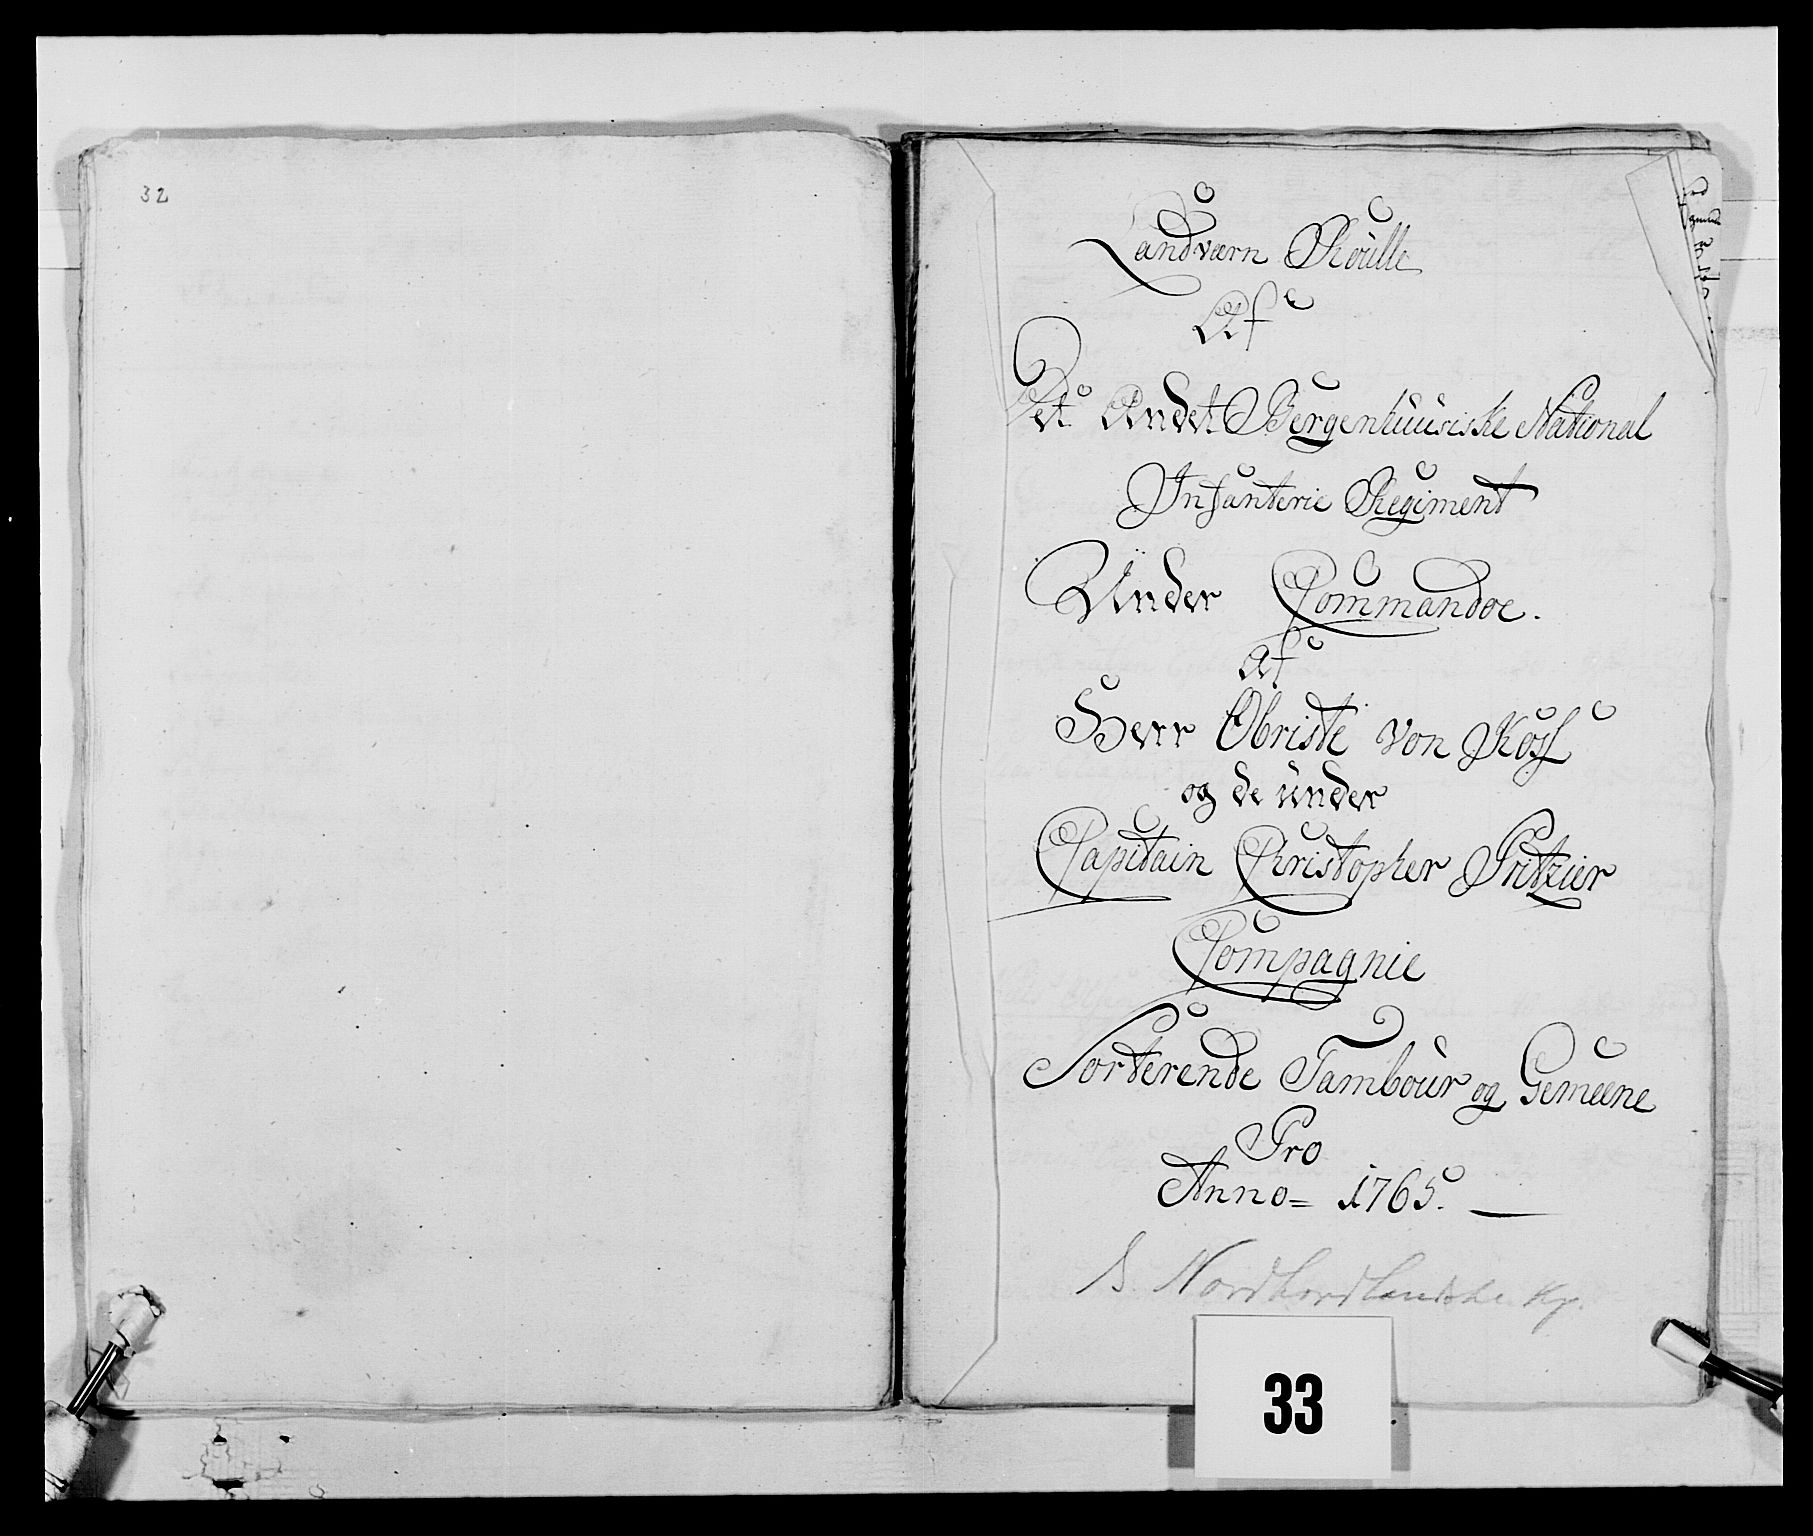 32
Landværn Roulle
Af
Det Andet Bergenhuusiske National
Infanterie Regiment
Under Commandoe.
af
Herr Obriste von Koss
og de under
Capitain Christopher Pritzier
Compagnie
Sorterende Tambour og Gemeene
Pro
Anno= 1765.
Nordhordlandske Kp.
33